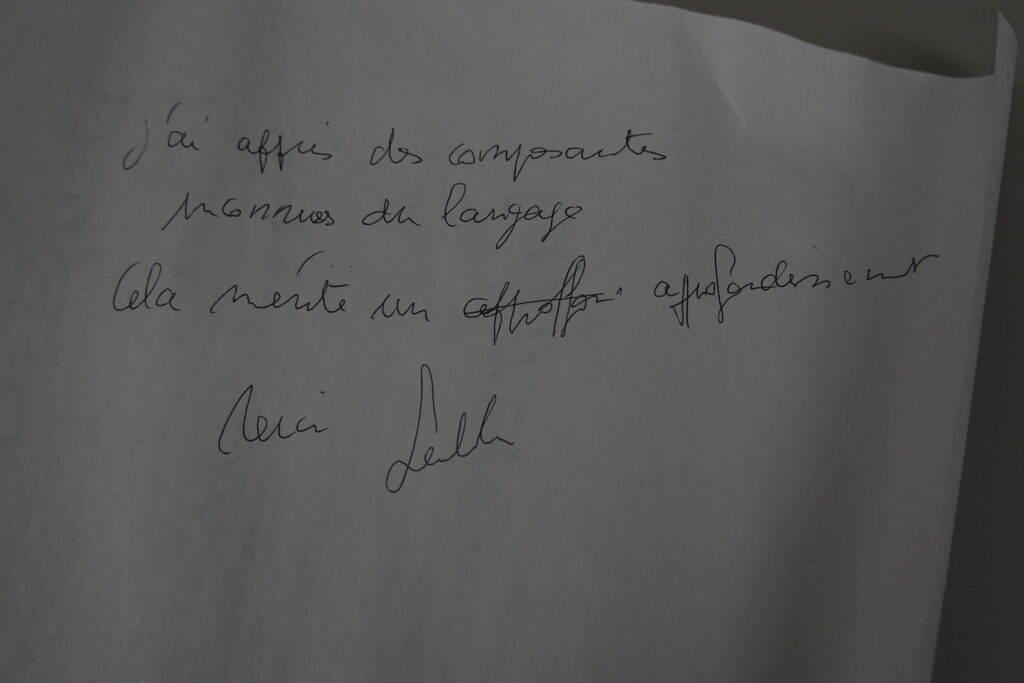 j'ai appris des composantes
inconnues du langage
Cela mérite un approfondissement
Merci